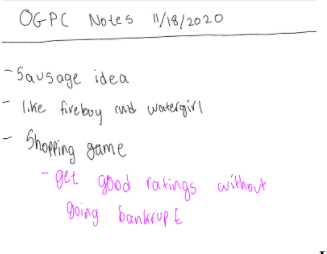 OGPC Notes 11/18/2020
- Sausage idea
- like fireboy and watergirl
- Shopping game
- get good ratings without
going bankrupt